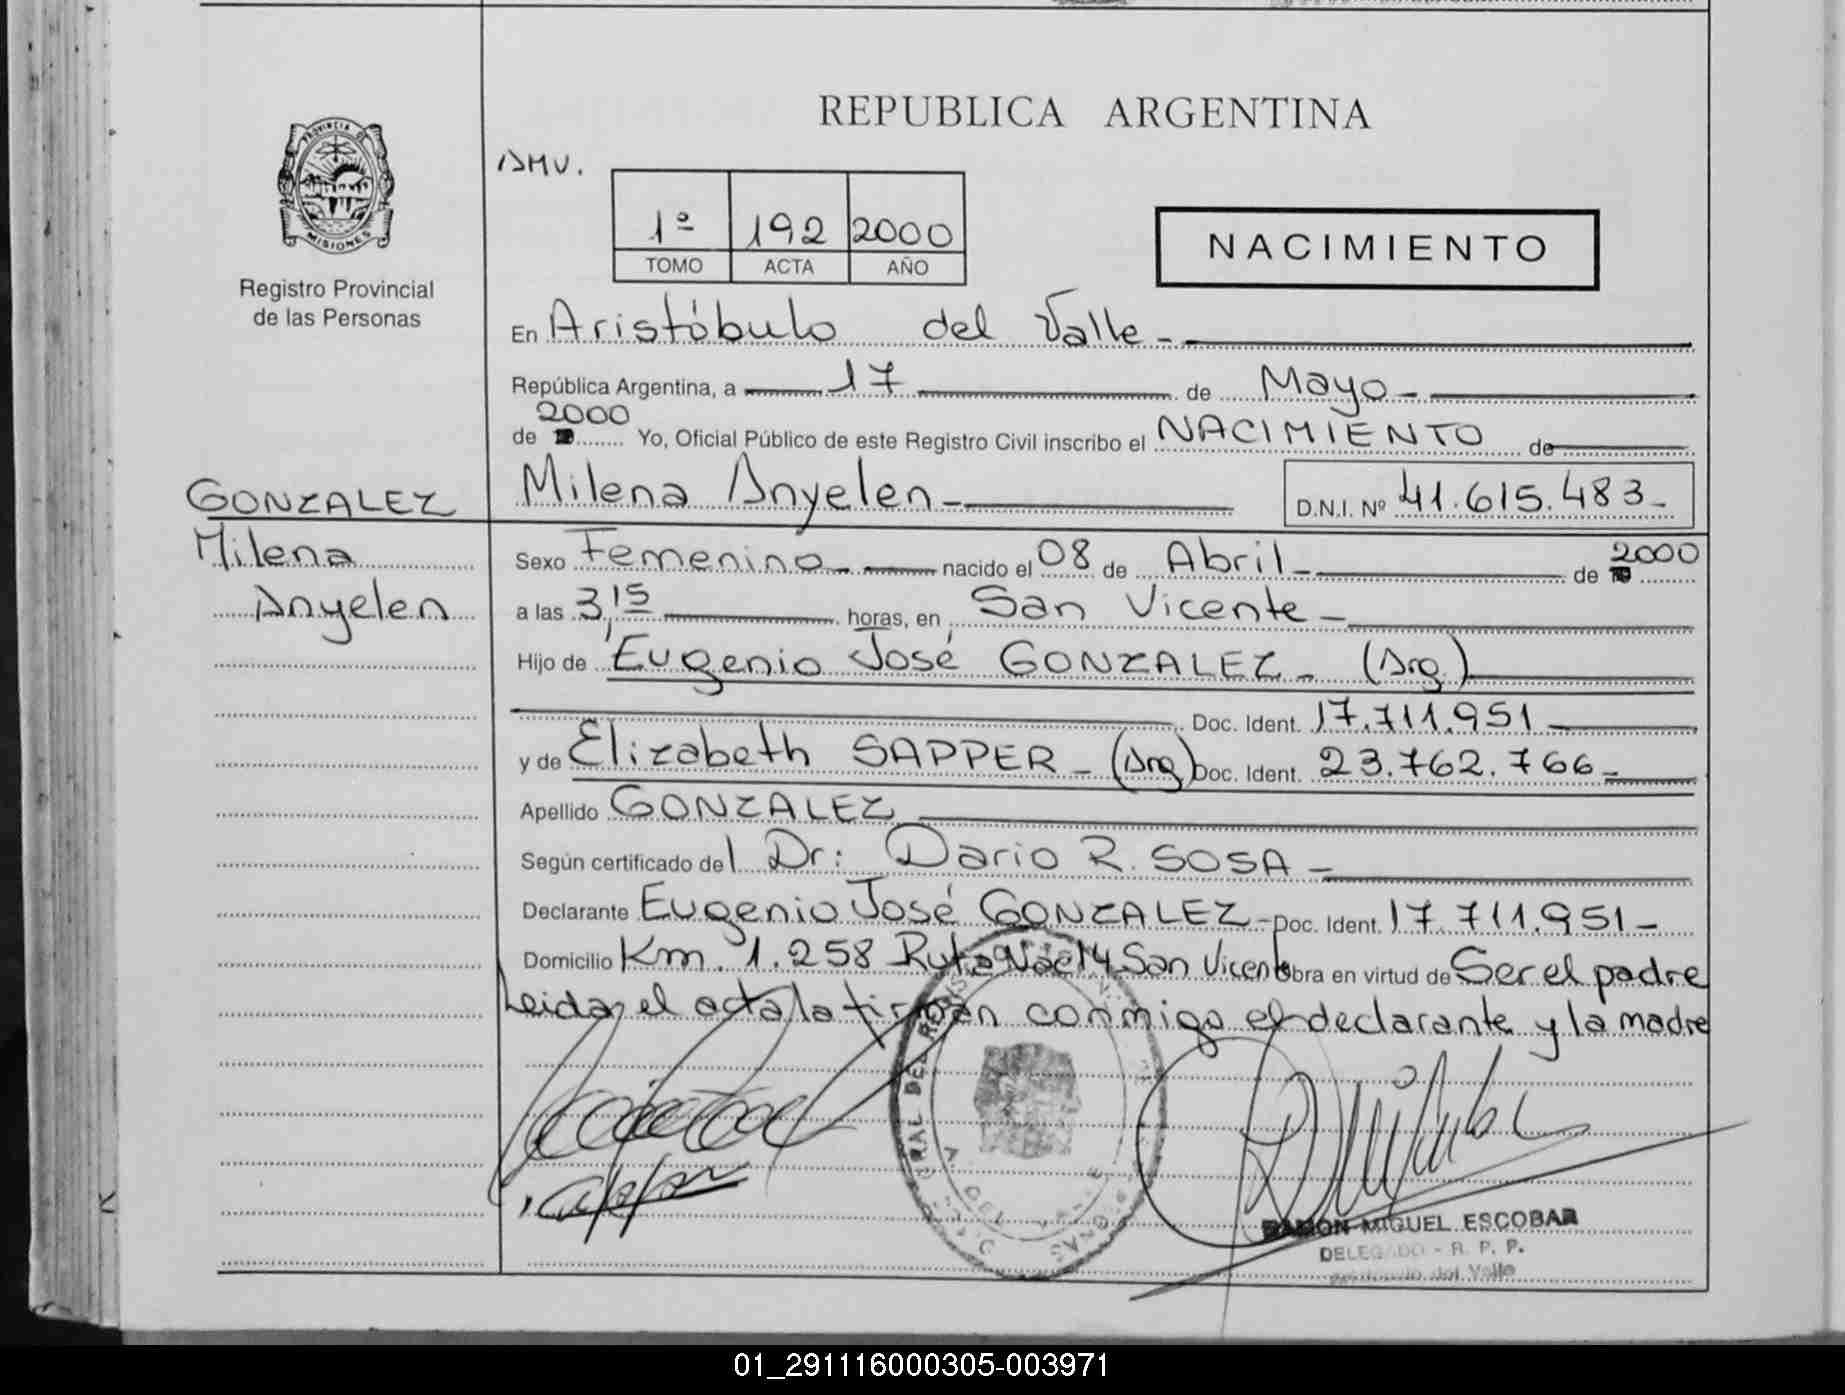 REPUBLICA ARGENTINA
PROVINCIA DE
MISIONES
Registro Provincial
de las Personas
1º 192 2000
TOMO ACTA AÑO
NACIMIENTO
En Aristóbulo del Valle -
República Argentina, a 17 de Mayo -
2000
de Yo, Oficial Público de este Registro Civil inscribo el NACIMIENTO de
GONZALEZ
Milena
Anyelen
Milena Anyelen - D.N.I. Nº 41.615.483-
Sexo Femenino - nacido el 08 de Abril - de 2000
a las 3,15 horas, en San Vicente -
Hijo de Eugenio José GONZALEZ - (Arg.)
Doc. Ident. 17.711.951
y de Elizabeth SAPPER - (Arg) Doc. Ident. 23.762.766-
Apellido GONZALEZ
Según certificado del Dr: Dario R. SOSA -
Declarante Eugenio José GONZALEZ - Doc. Ident. 17.711.951-
Domicilio Km. 1.258 Ruta Nac 14 San Vicente obra en virtud de Ser el padre
Leida el acta la firman conmigo el declarante y la madre
RAMON MIGUEL ESCOBAR
DELEGADO - R. P. P.
del Valle
01_291116000305-003971